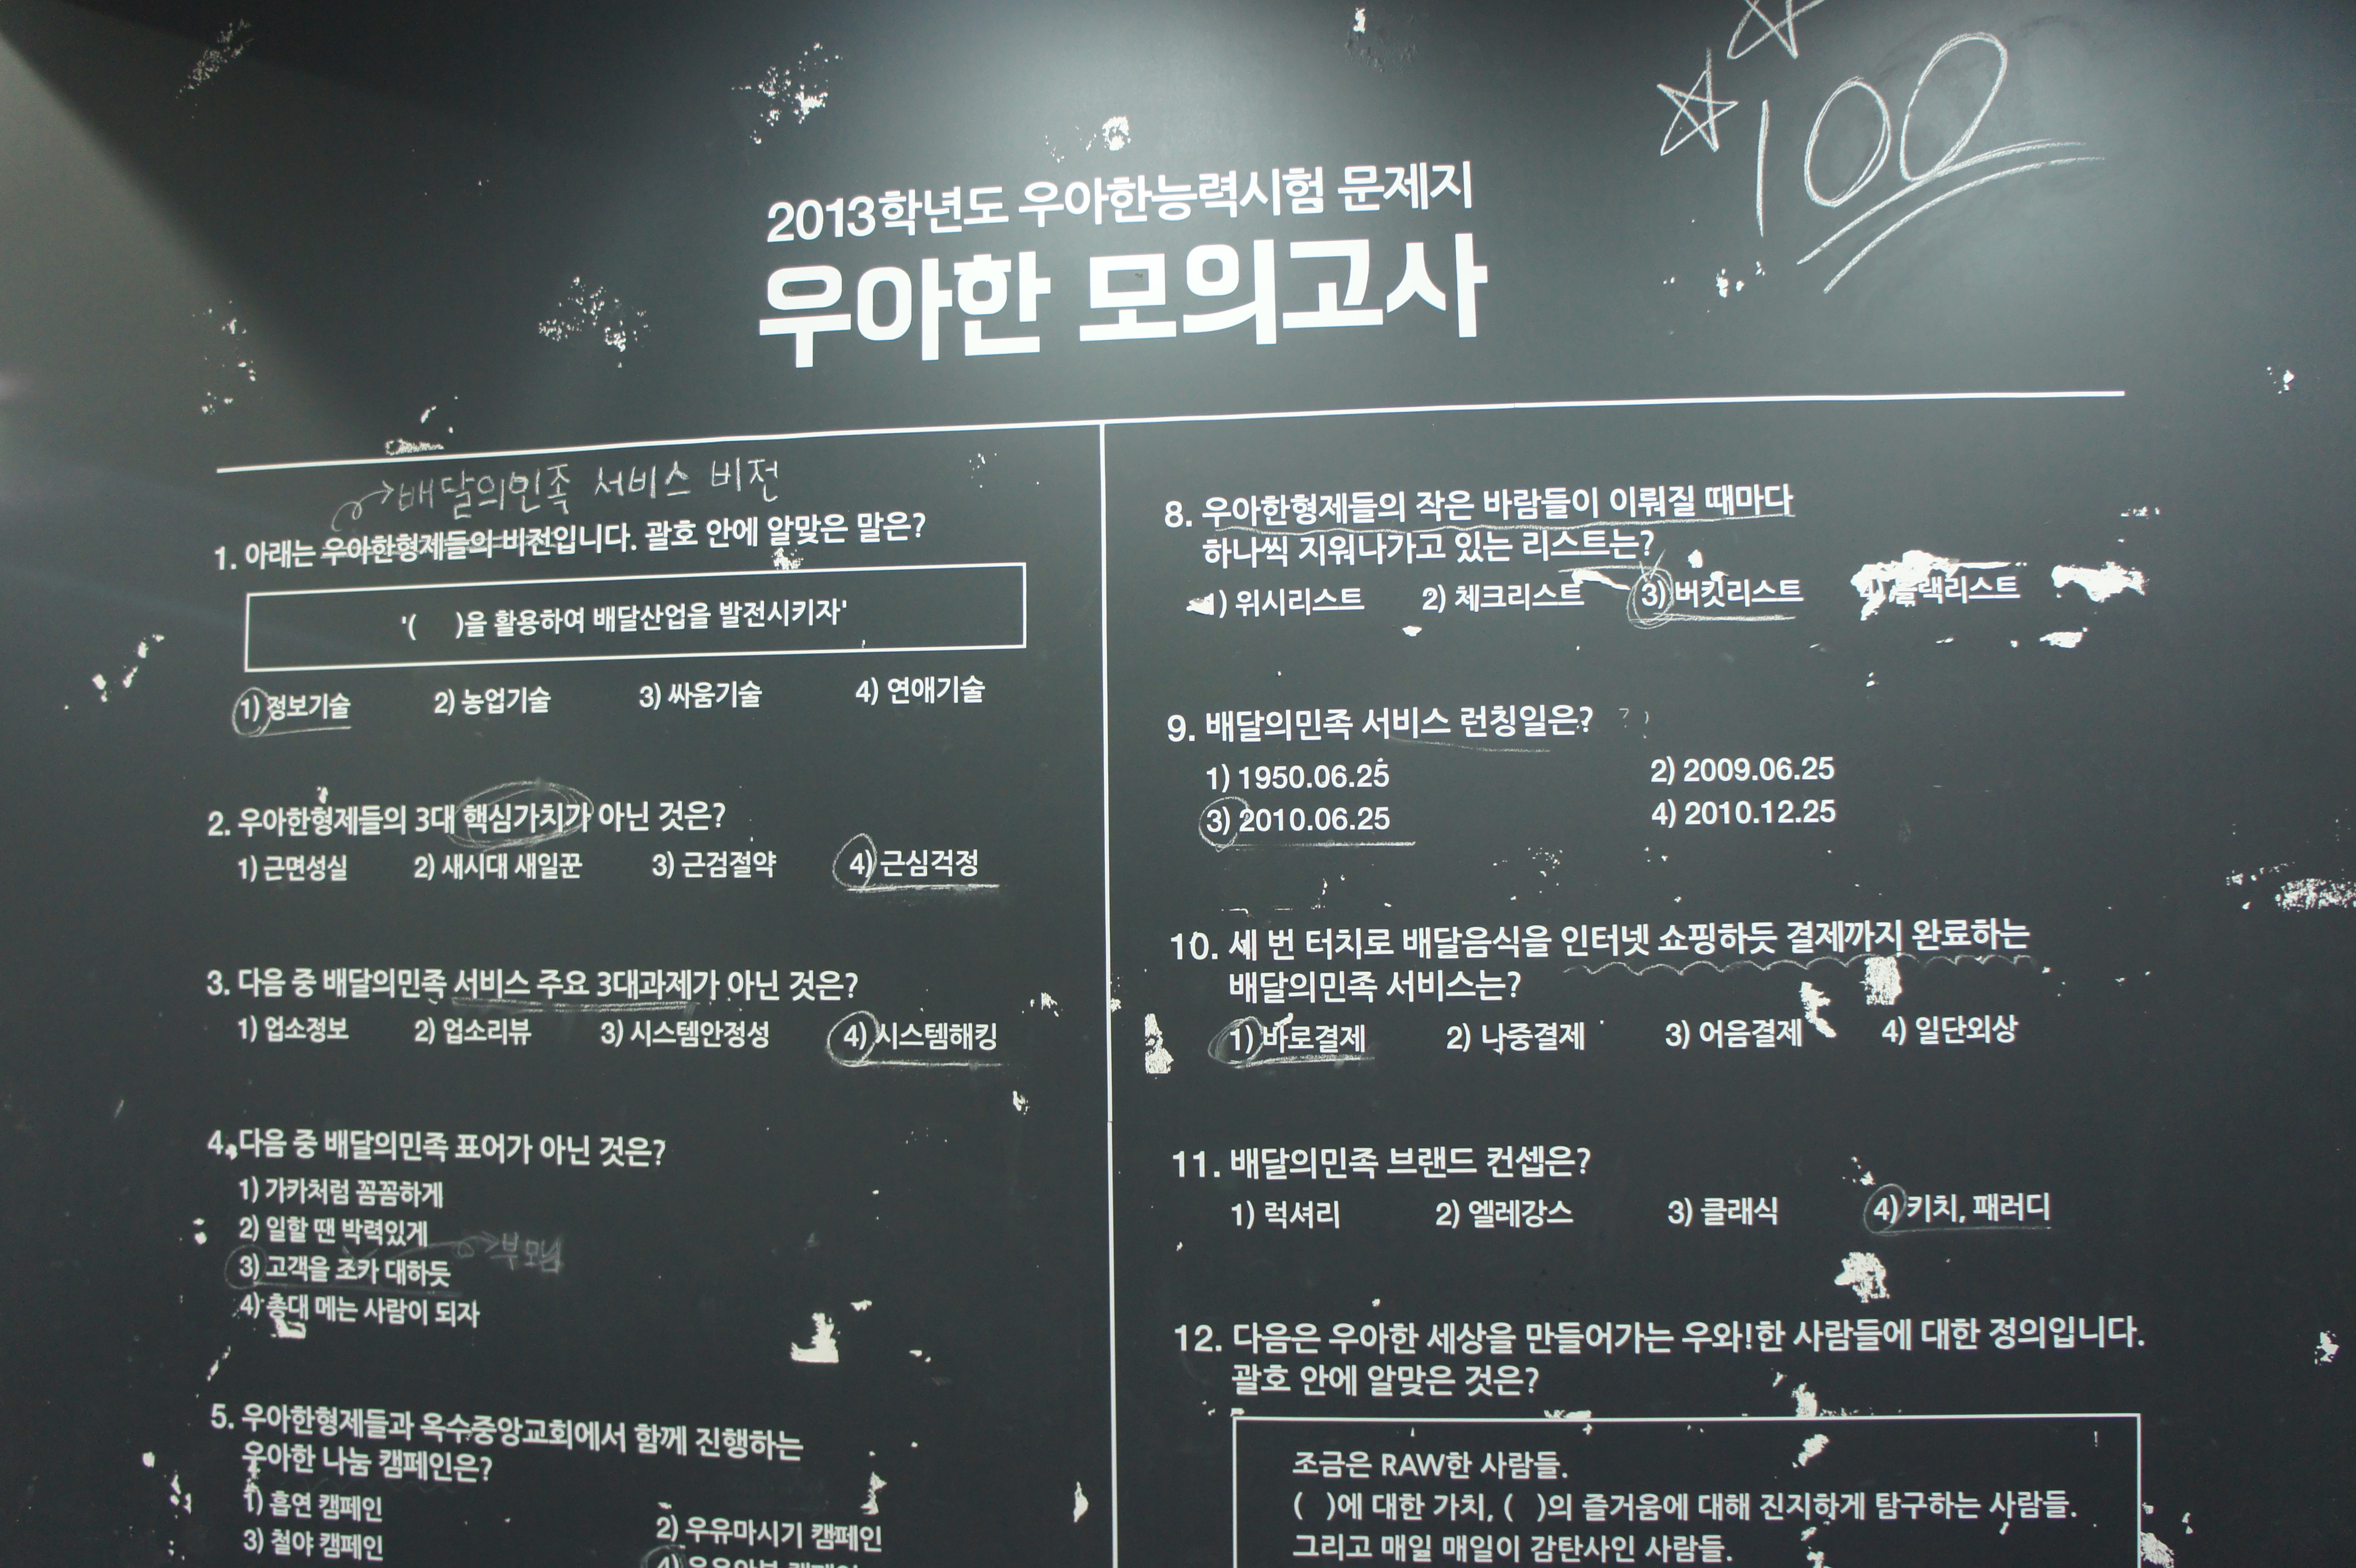 100
2013학년도 우아한능력시험 문제지
우아한 모의고사
배달의민족 서비스 비전
1. 아래는 우아한형제들의 비전입니다. 괄호 안에 알맞은 말은?
'( )을 활용하여 배달산업을 발전시키자'
1) 정보기술 2) 농업기술 3) 싸움기술 4) 연애기술
2. 우아한형제들의 3대 핵심가치가 아닌 것은?
1) 근면성실 2) 새시대 새일꾼 3) 근검절약 4) 근심걱정
3. 다음 중 배달의민족 서비스 주요 3대과제가 아닌 것은?
1) 업소정보 2) 업소리뷰 3) 시스템안정성 4) 시스템해킹
4. 다음 중 배달의민족 표어가 아닌 것은?
1) 가카처럼 꼼꼼하게
2) 일할 땐 박력있게
부모님
3) 고객을 조카 대하듯
4) 총대 메는 사람이 되자
5. 우아한형제들과 옥수중앙교회에서 함께 진행하는
우아한 나눔 캠페인은?
1) 흡연 캠페인 2) 우유마시기 캠페인
3) 철야 캠페인
8. 우아한형제들의 작은 바람들이 이뤄질 때마다
하나씩 지워나가고 있는 리스트는?
1) 위시리스트 2) 체크리스트 3) 버킷리스트 4) 블랙리스트
9. 배달의민족 서비스 런칭일은? ?
1) 1950.06.25 2) 2009.06.25
3) 2010.06.25 4) 2010.12.25
10. 세 번 터치로 배달음식을 인터넷 쇼핑하듯 결제까지 완료하는
배달의민족 서비스는?
1) 바로결제 2) 나중결제 3) 어음결제 4) 일단외상
11. 배달의민족 브랜드 컨셉은?
1) 럭셔리 2) 엘레강스 3) 클래식 4) 키치, 패러디
12. 다음은 우아한 세상을 만들어가는 우와!한 사람들에 대한 정의입니다.
괄호 안에 알맞은 것은?
조금은 RAW한 사람들.
( )에 대한 가치, ( )의 즐거움에 대해 진지하게 탐구하는 사람들.
그리고 매일 매일이 감탄사인 사람들.